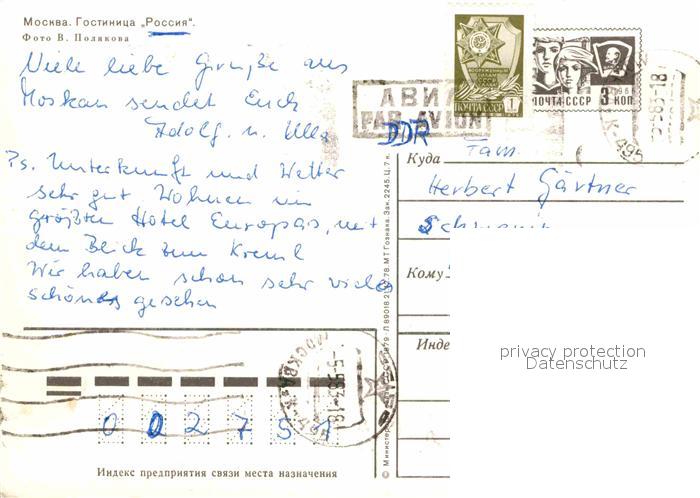 Москва. Гостиница „Россия“.
Фото В. Полякова
Viele liebe Grüße aus
Moskau sendet Euch
Adolf u. Ulla
Ps. Unterkunft und Wetter
sehr gut Wohnen im
größten Hotel Europas, mit
dem Blick zum Kreml
Wir haben schon sehr vieles
schönes gesehen
ПОЧТА СССР
1
ПОЧТА СССР 3 КОП
АВИА
PAR AVION
DDR
Куда Fam.
Herbert Gärtner
Кому
Инде
privacy protection
Datenschutz
МОСКВА
002751
Индекс предприятия связи места назначения